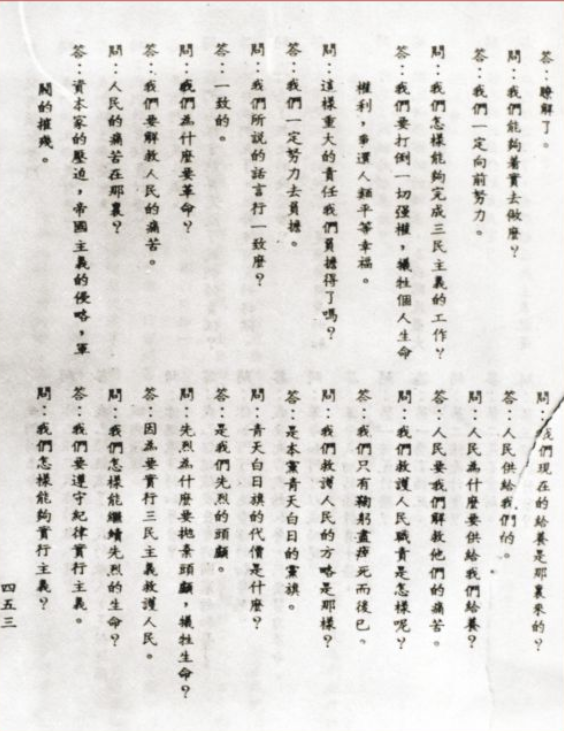 答：瞭解了。
問：我們能夠著實去做麼？
答：我們一定向前努力。
問：我們怎樣能夠完成三民主義的工作？
答：我們要打倒一切強權，犧牲個人生命
權利，爭還人類平等幸福。
問：這樣重大的責任我們負擔得了嗎？
答：我們一定努力去負擔。
問：我們所說的話言行一致麼？
答：一致的。
問：我們為什麼要革命？
答：我們要解救人民的痛苦。
問：人民的痛苦在那裏？
答：資本家的壓迫，帝國主義的侵略，軍
閥的摧殘。
問：我們現在的給養是那裏來的？
答：人民供給我們的。
問：人民為什麼要供給我們給養？
答：人民要我們解救他們的痛苦。
問：我們救護人民職責是怎樣呢？
答：我們只有鞠躬盡瘁死而後已。
問：我們救護人民的方略是那樣？
答：是本黨青天白日的黨旗。
問：青天白日旗的代價是什麼？
答：是我們先烈的頭顱。
問：先烈為什麼要拋棄頭顱，犧牲生命？
答：因為要實行三民主義救護人民。
問：我們怎樣能繼續先烈的生命？
答：我們要遵守紀律實行主義。
問：我們怎樣能夠實行主義？
四五三